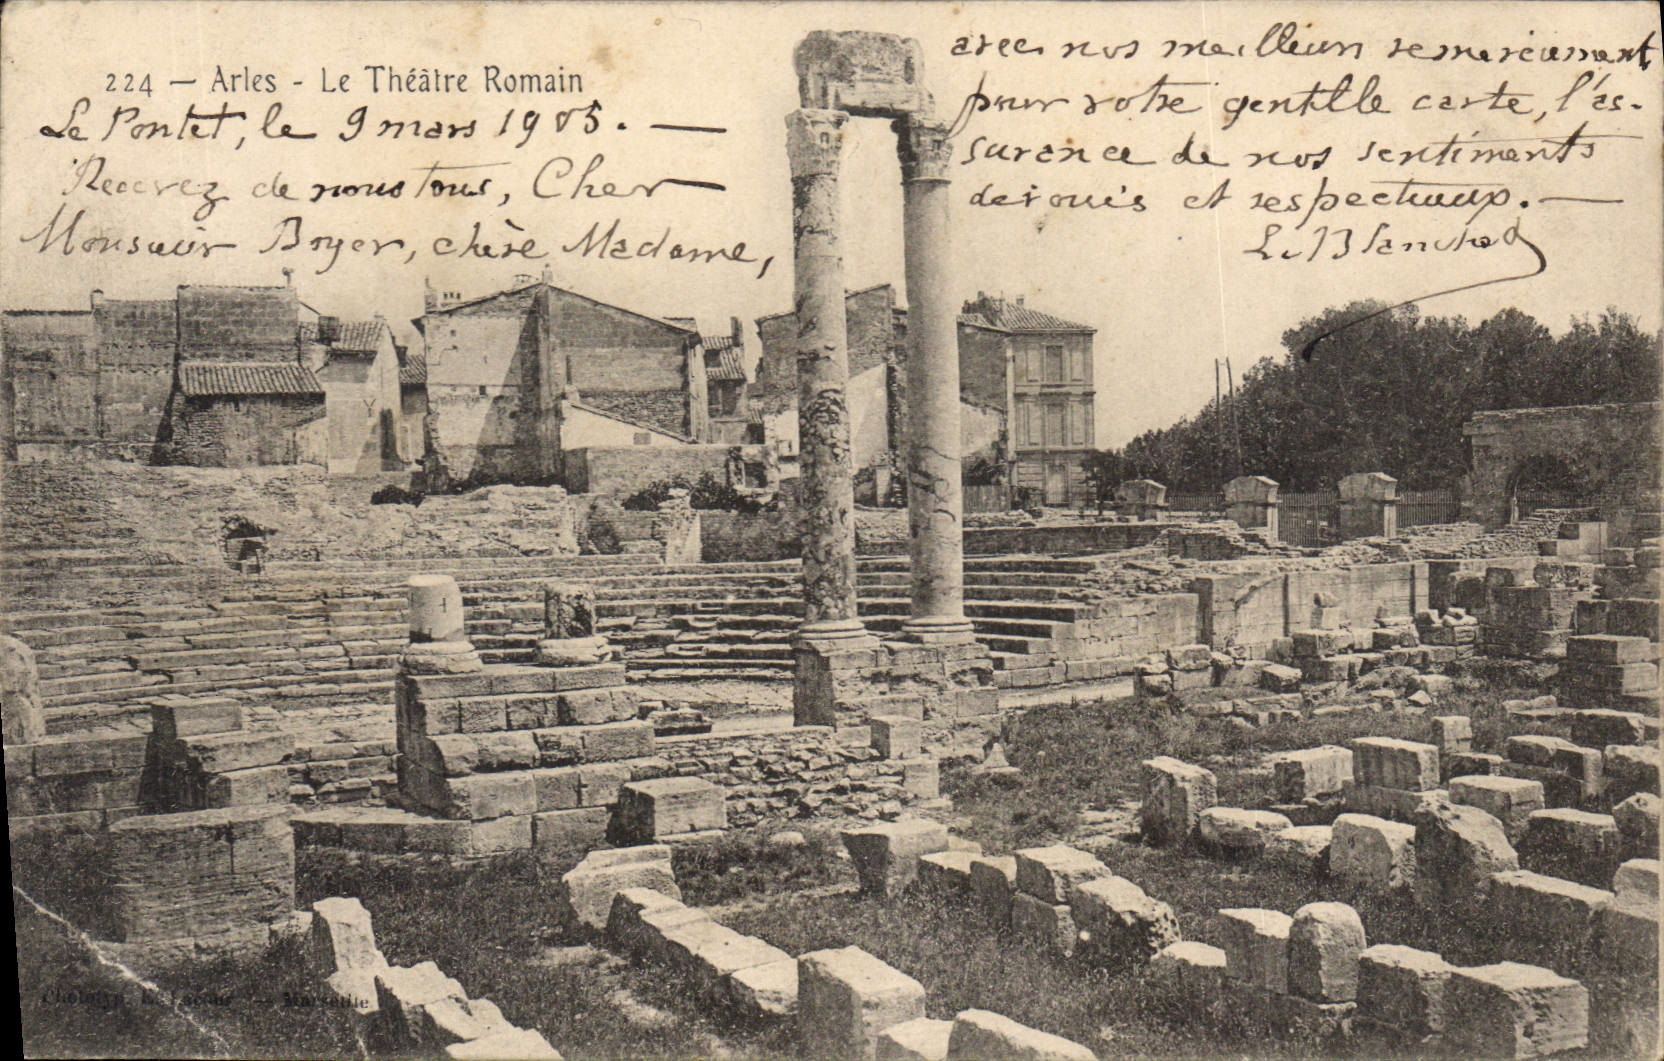 224 — Arles - Le Théâtre Romain
Le Pontet, le 9 mars 1905. —
Recevez de nous tous, Cher
Monsieur Boyer, chère Madame,
avec nos meilleurs remerciements
pour votre gentille carte, l'as-
surance de nos sentiments
dévoués et respectueux. —
L. Blanchad
Phototyp. E. Lacour — Marseille